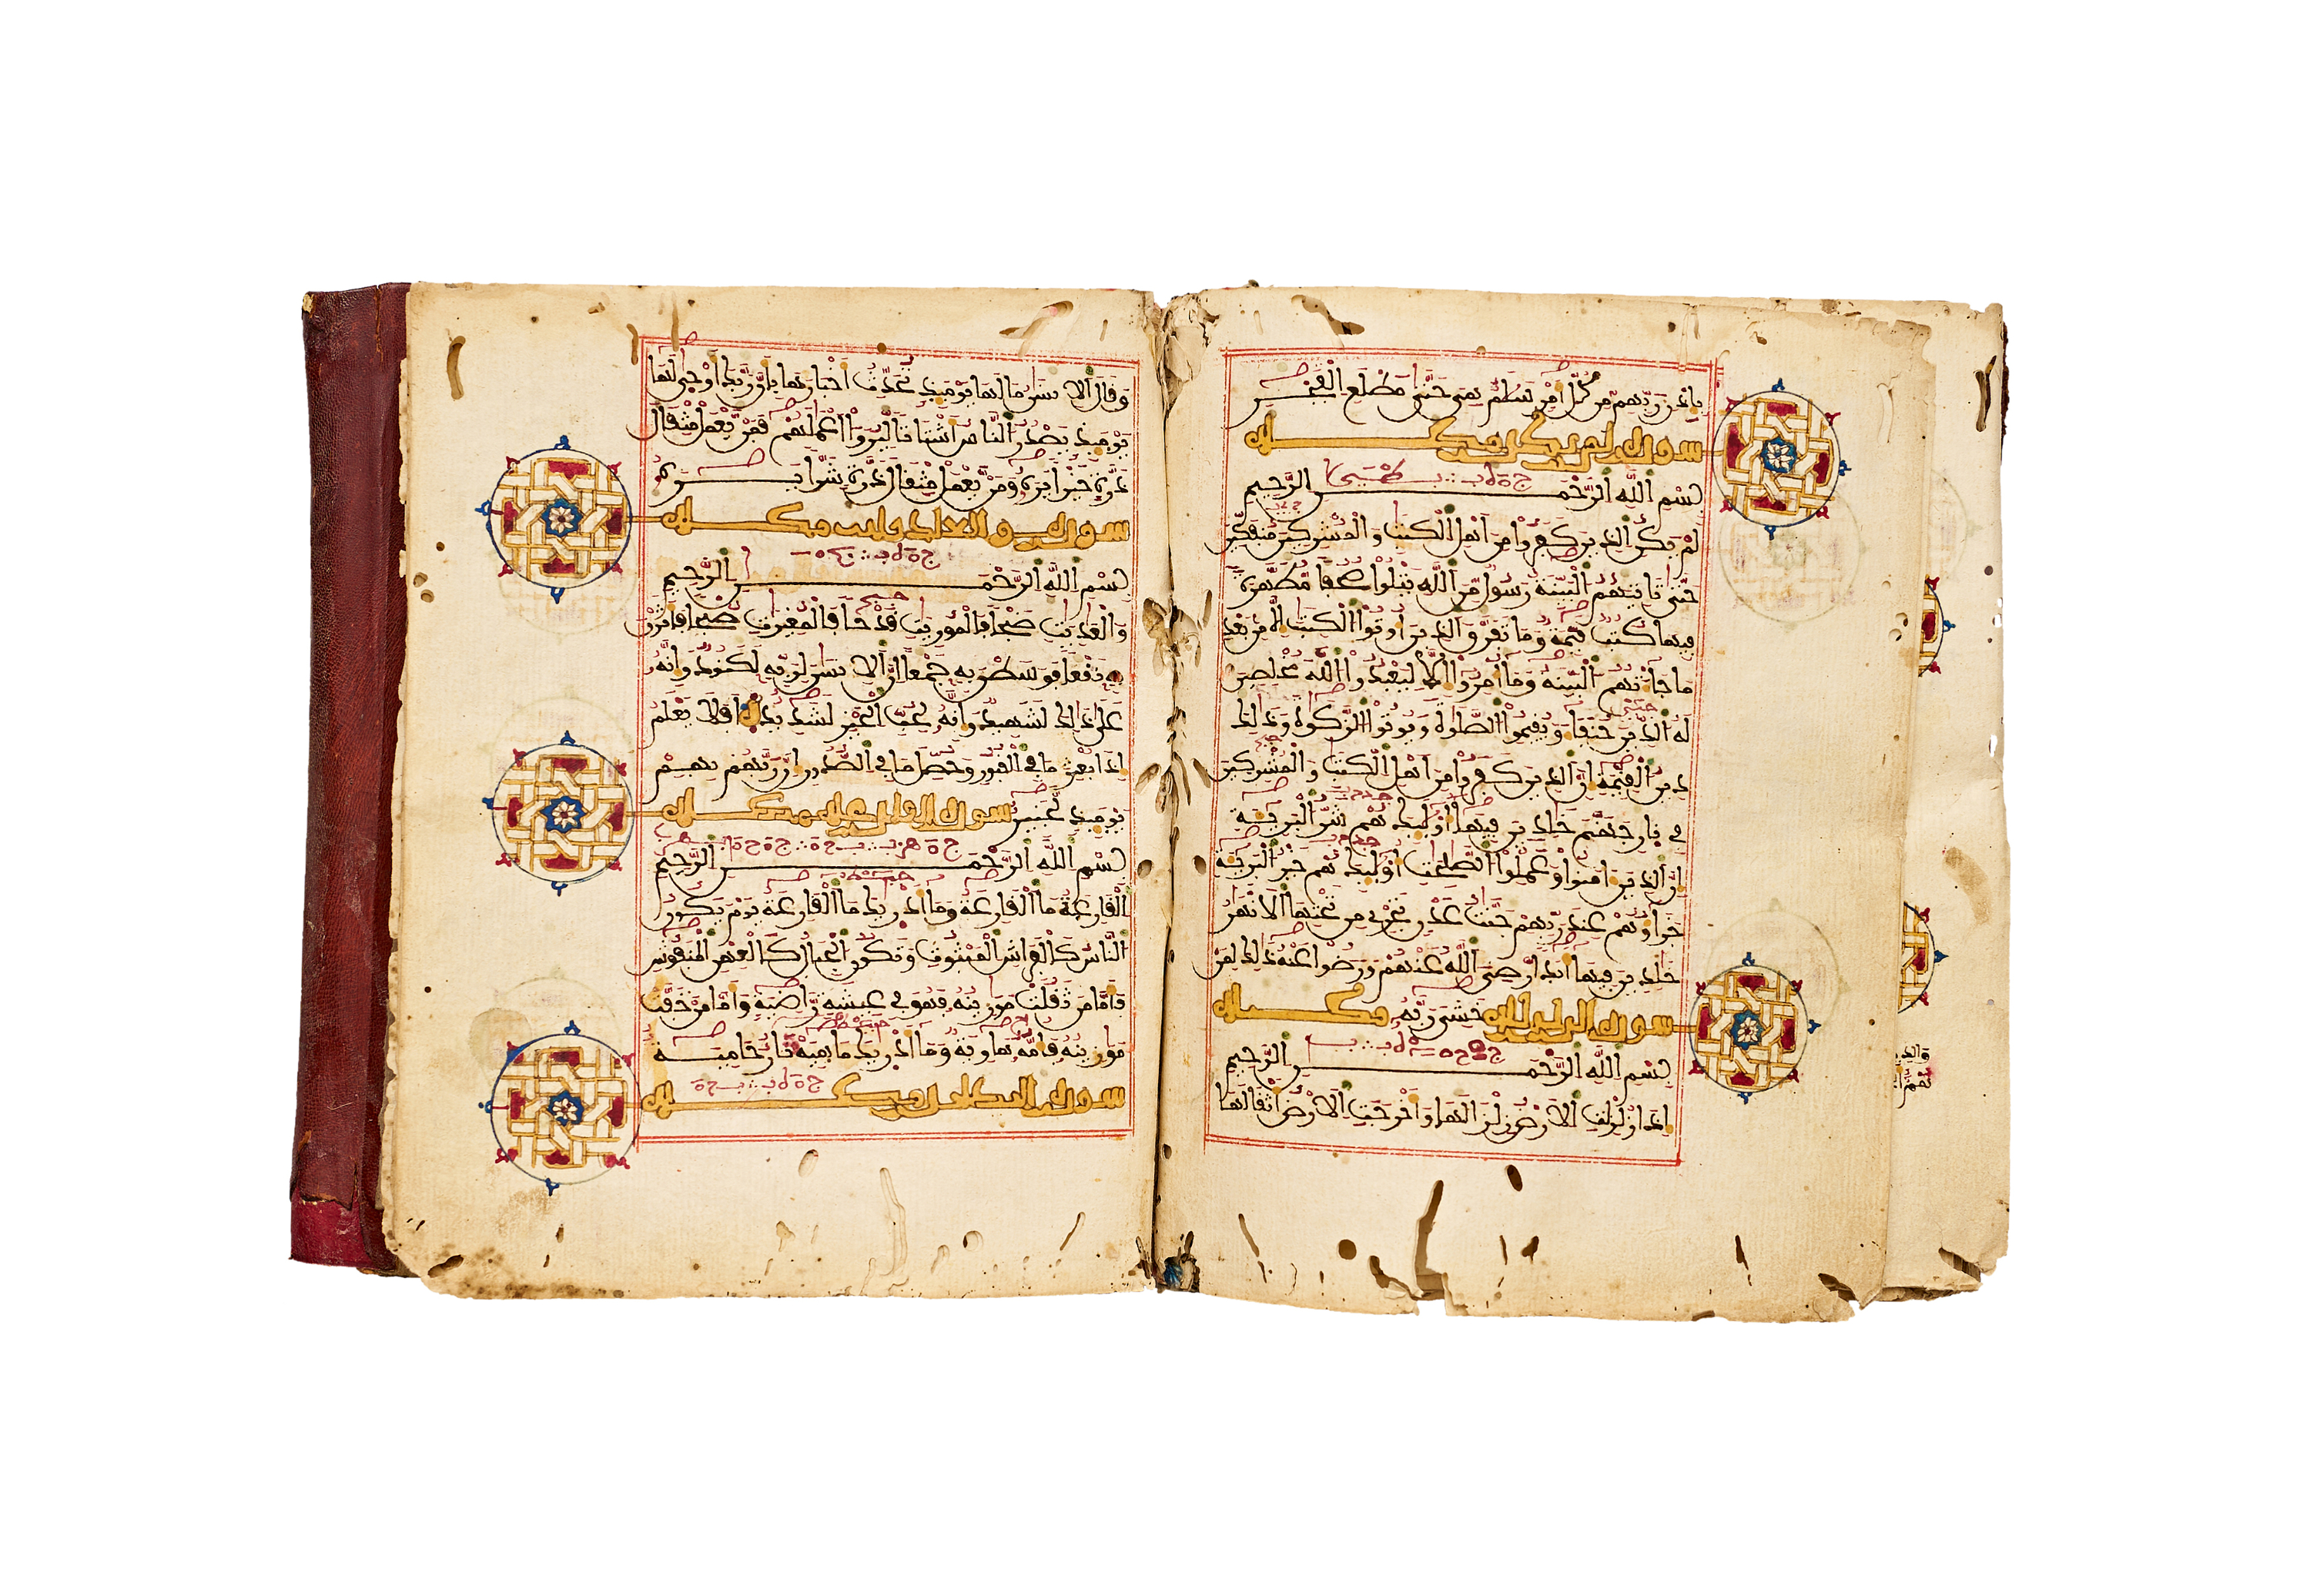 بإذن ربهم من كل أمر سلم هي حتى مطلع الفجر
سورة لم يكن مكية
بسم الله الرحمن الرحيم
لم يكن الذين كفروا من أهل الكتب والمشركين منفكين
حتى تأتيهم البينة رسول من الله يتلوا صحفا مطهرة
فيها كتب قيمة وما تفرق الذين أوتوا الكتب إلا من بعد
ما جاءتهم البينة وما أمروا إلا ليعبدوا الله مخلصين
له الدين حنفاء ويقيموا الصلوة ويوتوا الزكوة وذلك
دين القيمة إن الذين كفروا من أهل الكتب والمشركين
في نار جهنم خلدين فيها أوليك هم شر البريئة
إن الذين ءامنوا وعملوا الصلحت أوليك هم خير البريئة
جزاؤهم عند ربهم جنت عدن تجري من تحتها الأنهر
خلدين فيها أبدا رضي الله عنهم ورضوا عنه ذلك لمن
خشي ربه سورة الزلزلة مكية
بسم الله الرحمن الرحيم
إذا زلزلت الأرض زلزالها وأخرجت الأرض أثقالها
وقال الإنسن ما لها يوميذ تحدث أخبارها بأن ربك أوحى لها
يوميذ يصدر الناس أشتاتا ليروا أعملهم فمن يعمل مثقال
ذرة خيرا يره ومن يعمل مثقال ذرة شرا يره
سورة والعاديات مكية
بسم الله الرحمن الرحيم
والعديت ضبحا فالموريت قدحا فالمغيرت صبحا فأثرن
به نقعا فوسطن به جمعا إن الإنسن لربه لكنود وإنه
على ذلك لشهيد وإنه لحب الخير لشديد أفلا يعلم
إذا بعثر ما في القبور وحصل ما في الصدور إن ربهم بهم
يوميذ لخبير سورة القارعة مكية
بسم الله الرحمن الرحيم
القارعة ما القارعة وما أدريك ما القارعة يوم يكون
الناس كالفراش المبثوث وتكون الجبال كالعهن المنفوش
فأما من ثقلت موزينه فهو في عيشة راضية وأما من خفت
موزينه فأمه هاوية وما أدريك ما هيه نار حامية
سورة التكاثر مكية